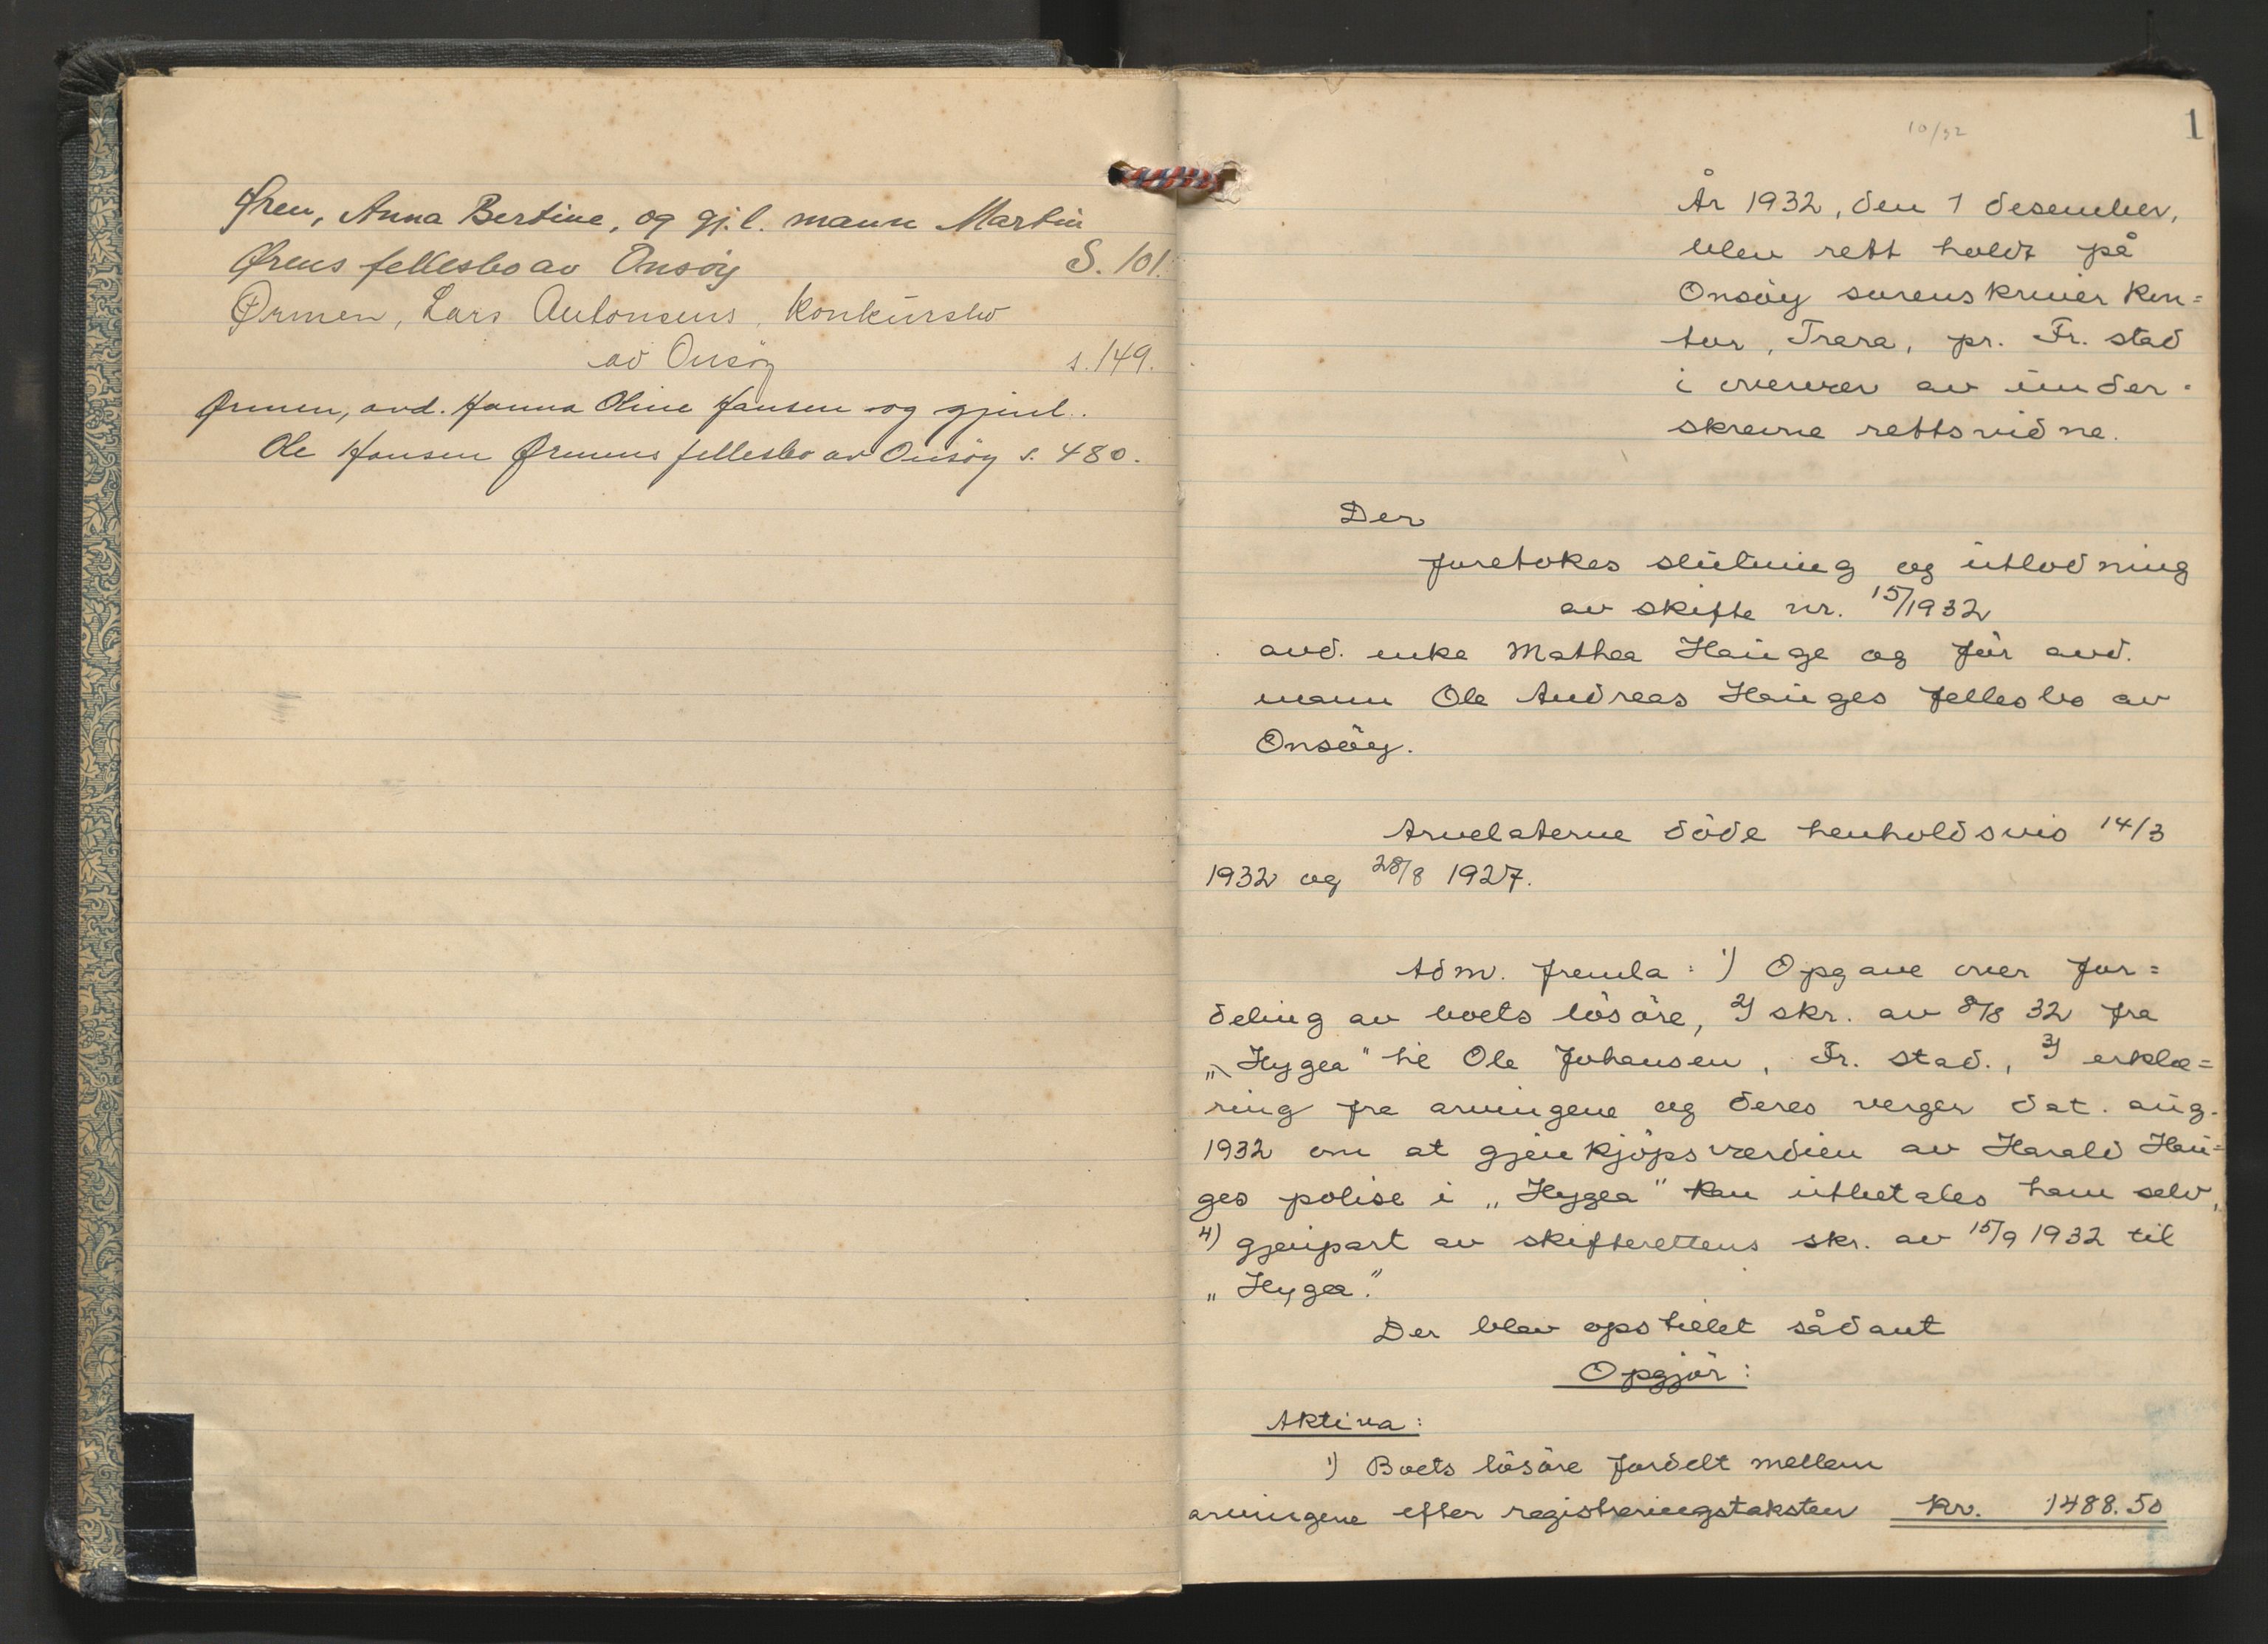 Øren, Anna Bertine, og gj.l. mann Martin
Ørens fellesbo av Onsöy S. 101.
Ørmen, Lars Antonsens, konkursbo
av Onsöy s. 149.
Ørmen, avd. Hanna Oline Hansen og gjenl.
Ole Hansen Ørmens fellesbo av Onsöy s. 480.
10/32
1
År 1932, den 1 desember,
blev rett holdt på
Onsöy sorenskriver kon=
tor, Trara, pr. Fr. stad
i overvær av under=
skrevne rettsvidne.
Der
foretokes slutning og utlodning
av skifte nr. 15/1932
avd. enke Mathea Hauge og før avd.
mann Ole Andreas Hauges fellesbo av
Onsöy.
Arvelaterne döde henholdsvis 14/3
1932 og 28/8 1927.
Adm. fremla: 1) Opgave over for=
deling av boets lösöre, 2) skr. av 8/8 32 fra
„Hygea" til Ole Johansen, Fr. stad., 3) erklæ=
ring fra arvingene og deres verger dat. aug.
1932 om at gjenkjöpsverdien av Harald Hau=
ges polise i „Hygea" kan utbetales ham selv,
4) gjenpart av skifterettens skr. av 15/9 1932 til
„Hygea."
Der blev opstillet sådant
Opgjör:
Aktiva:
1) Boets lösöre fordelt mellem
arvingene efter registreringstaksten kr. 1488.50